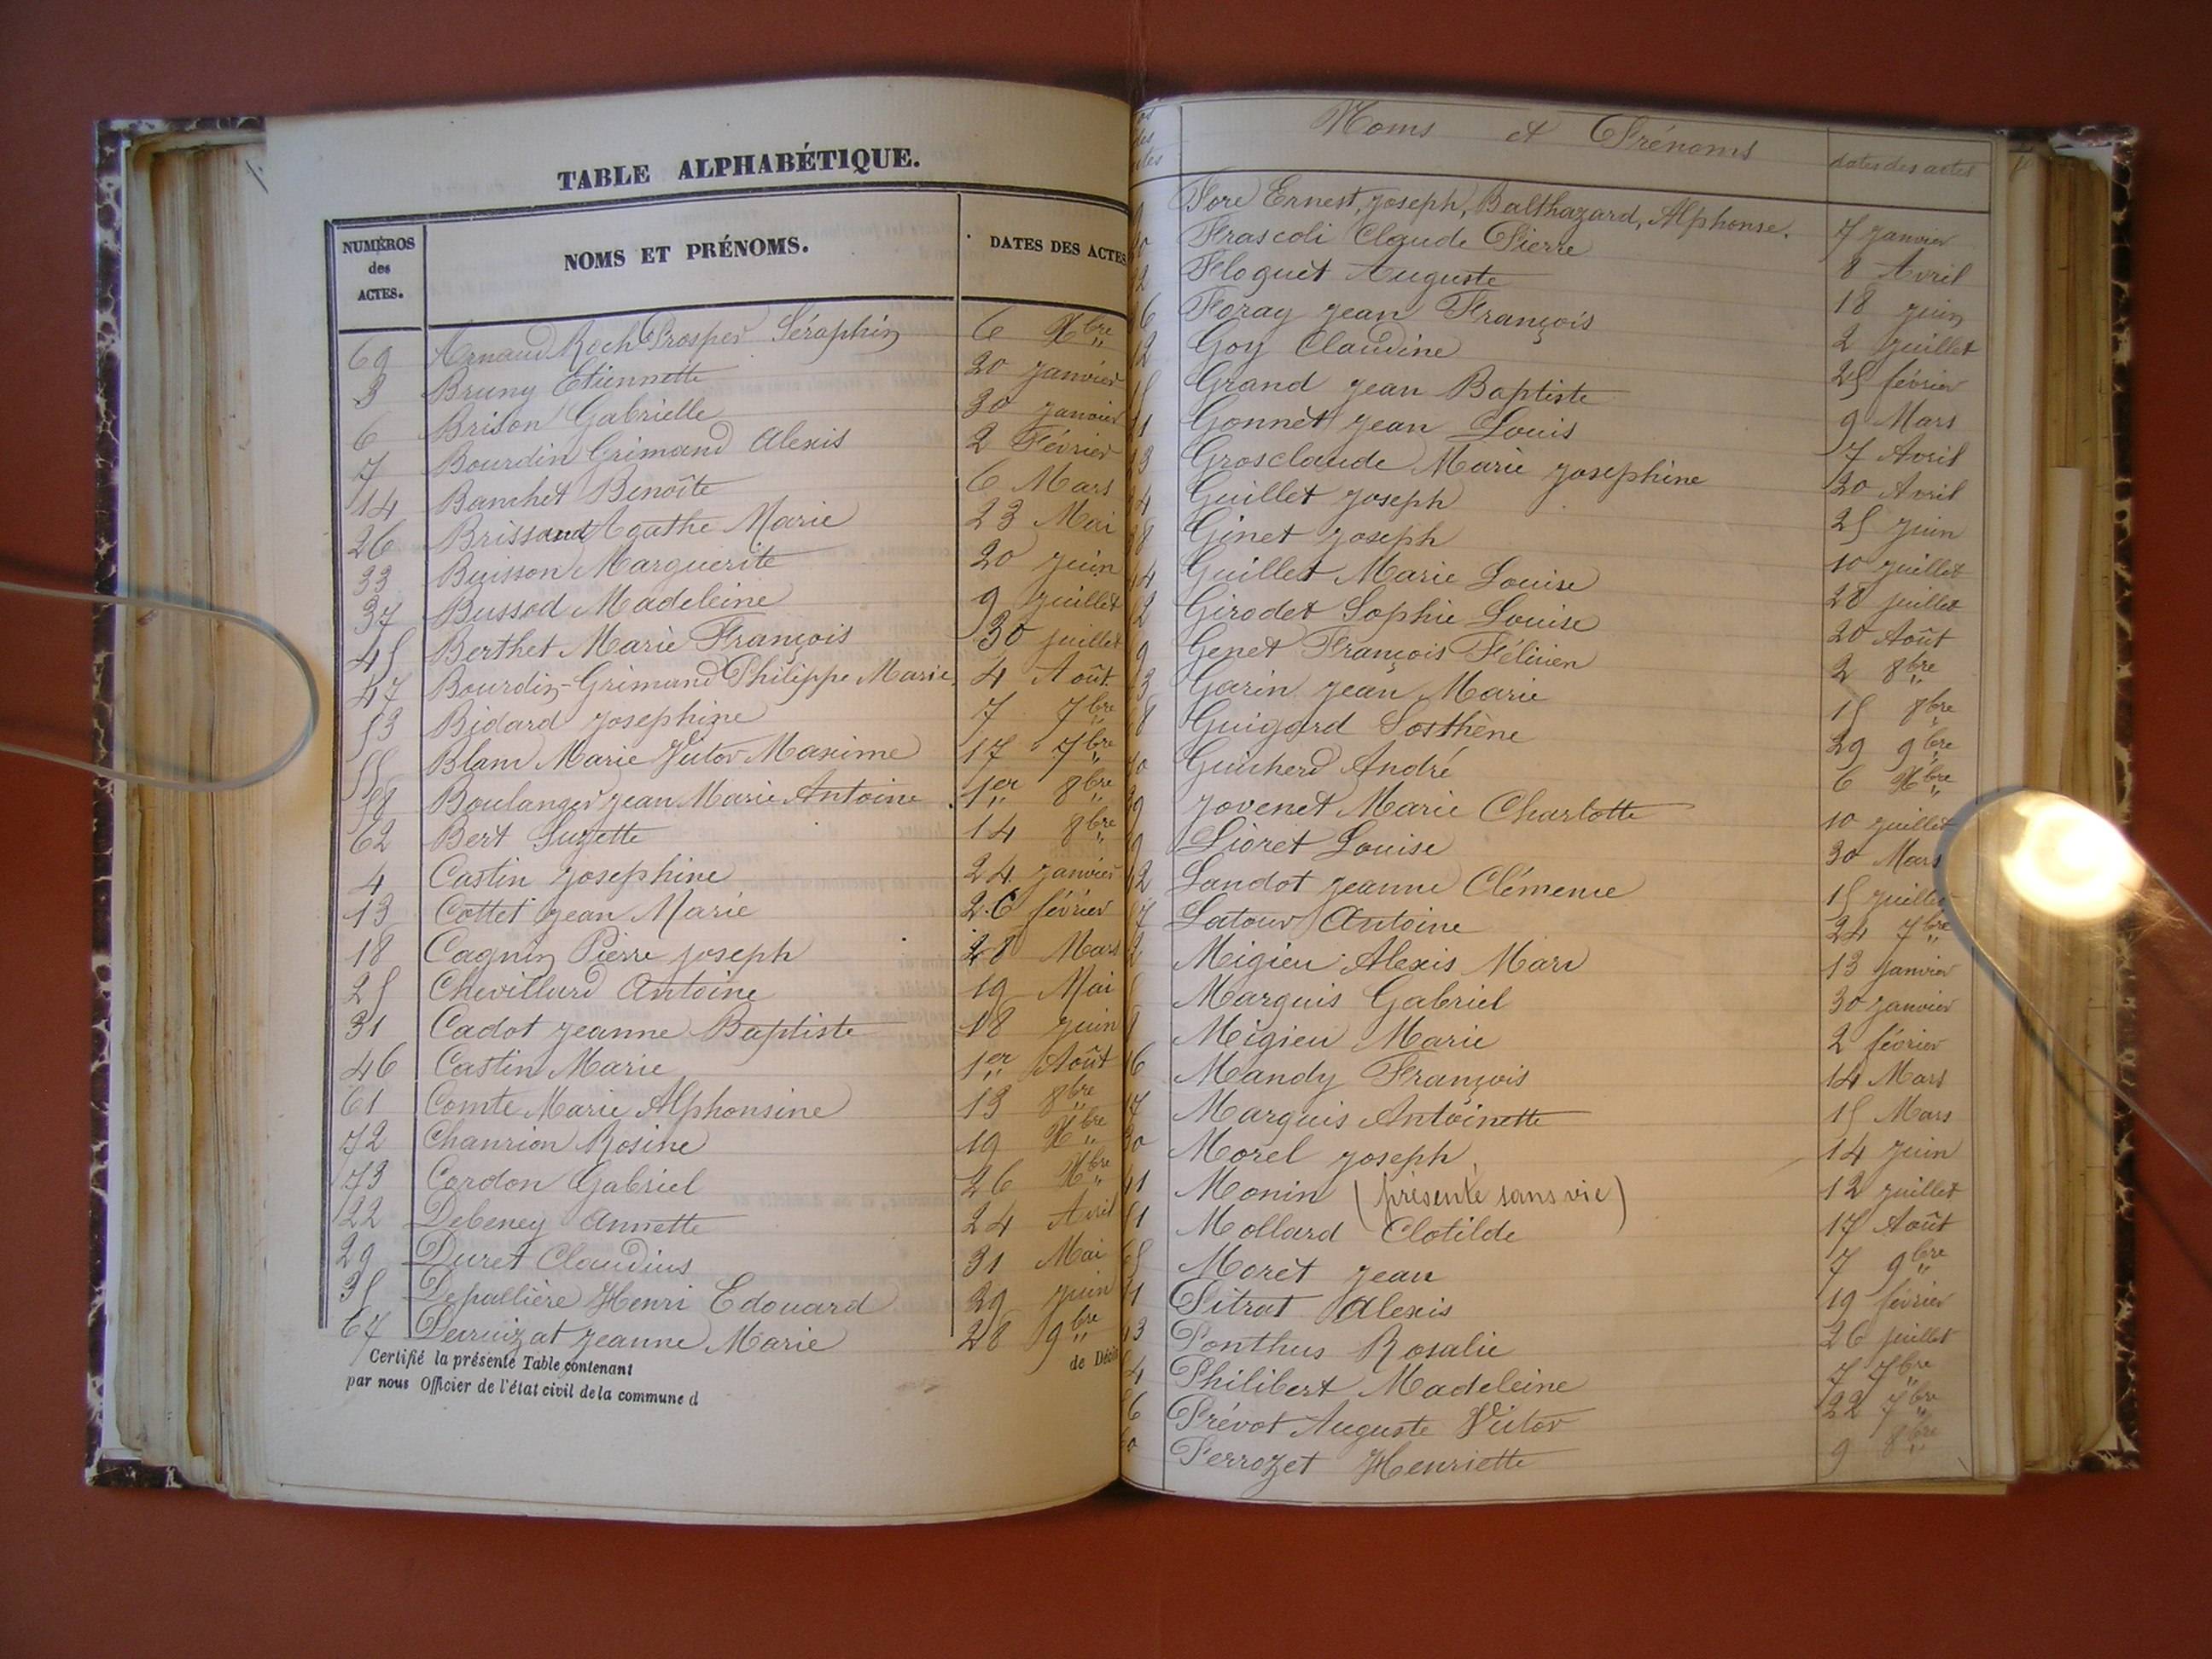 TABLE ALPHABÉTIQUE.
NUMÉROS des ACTES. NOMS ET PRÉNOMS. DATES DES ACTES
69 Arnaud Roch Prosper Séraphin 6 Xbre
3 Bruny Etiennette 20 janvier
6 Brison Gabrielle 30 janvier
7 Bourdin Grimand Alexis 2 Février
14 Banchet Benoîte 6 Mars
26 Brissaud Agathe Marie 23 Mai
33 Buisson Marguerite 20 juin
37 Bussod Madeleine 9 juillet
45 Berthet Marie François 30 juillet
47 Bourdin-Grimand Philippe Marie 4 Août
53 Bidard Josephine 7 7bre
55 Blanc Marie Victor Maxime 17 7bre
58 Boulanger jean Marie Antoine 1er 8bre
62 Bert Suzette 14 8bre
4 Castin Josephine 24 janvier
13 Cottet jean Marie 26 février
18 Cagnin Pierre joseph 28 Mars
25 Chevillard Antoine 19 Mai
31 Cadot jeanne Baptiste 18 juin
46 Castin Marie 1er Août
61 Comte Marie Alphonsine 13 8bre
72 Chanrion Rosine 19 Xbre
73 Cordon Gabriel 26 Xbre
22 Debeney Annette 24 Avril
29 Duret Claudius 31 Mai
35 Depallière Henri Edouard 29 juin
67 jeanne Marie 28 9bre
Certifié la présente Table contenant de Décès
par nous Officier de l'état civil de la commune d
Noms et Prénoms dates des actes
Fore Ernest, joseph, Balthazard, Alphonse. 7 janvier
Frascoli Claude Pierre 8 Avril
Floquet Auguste 18 juin
Foray jean François 2 juillet
Goy Claudine 25 février
Grand jean Baptiste 9 Mars
Gonnet jean Louis 7 Avril
Grosclaude Marie josephine 20 Avril
Guillet joseph 25 juin
Ginet joseph 10 juillet
Guillet Marie Louise 28 juillet
Girodet Sophie Louise 20 Août
Genet François Félicien 2 8bre
Garin jean Marie 15 8bre
Guigard Sosthène 29 9bre
Guicherd André 6 Xbre
Jovenet Marie Charlotte 10 juillet
Lioret Louise 30 Mars
Landot jeanne Clémence 15 juillet
Latour Antoine 24 7bre
Migieu Alexis Marc 13 janvier
Marquis Gabriel 30 janvier
Migieu Marie 2 février
Mandy François 14 Mars
Marquis Antoinette 15 Mars
Morel joseph 14 juin
Monin (présente sans vie) 12 juillet
Mollard Clotilde 17 Août
Moret jean 7 9bre
Pitrat Alexis 19 février
Ponthus Rosalie 26 juillet
Philibert Madeleine 7 7bre
Prévot Auguste Victor 22 7bre
Perrozet Henriette 9 8bre